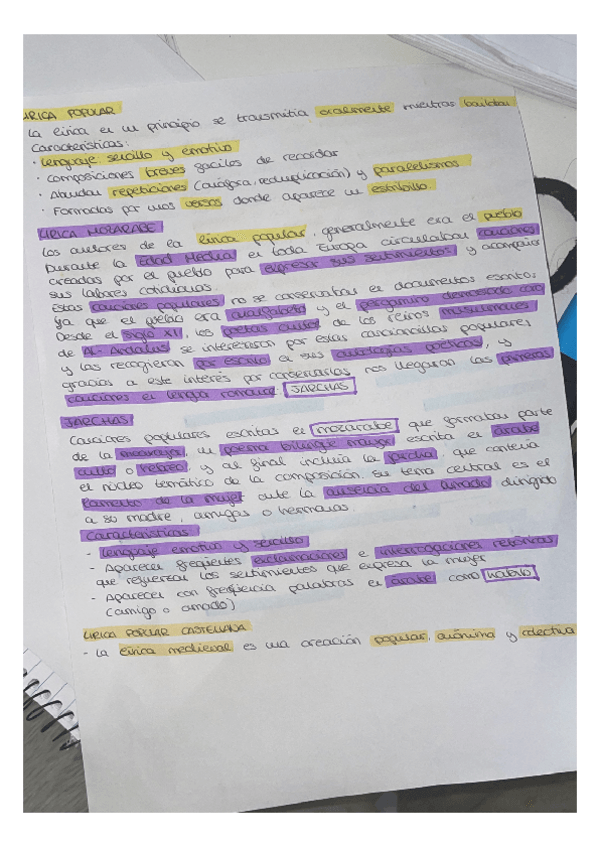 LÍRICA POPULAR
La lírica en un principio se transmitía oralmente mientras bailaban
Características:
· Lenguaje sencillo y emotivo
· Composiciones breves fáciles de recordar
· Abundan repeticiones (anáfora, reduplicación) y paralelismos.
· Formadas por unos versos donde aparece un estribillo.
LÍRICA MOZÁRABE
Los autores de la lírica popular, generalmente era el pueblo
Durante la Edad Media en toda Europa circulaban canciones
creadas por el pueblo para expresar sus sentimientos y acompañar
sus labores cotidianas.
Estas canciones populares no se conservaban en documentos escritos,
ya que el pueblo era analfabeto y el pergamino demasiado caro
Desde el siglo XI, los poetas cultos de los reinos musulmanes
de Al-Andalus se interesaron por estas cancioncillas populares,
y las recogieron por escrito en sus antologías poéticas, y
gracias a este interés por conservarlas nos llegaron las primeras
canciones en lengua romance: JARCHAS
JARCHAS
Canciones populares escritas en mozárabe que formaban parte
de la moaxaja, un poema bilingüe mayor escrita en árabe
culto o hebreo, y al final incluía la jarcha, que contenía
el núcleo temático de la composición. Su tema central es el
lamento de la mujer ante la ausencia del amado dirigido
a su madre, amigas o hermanas.
Características:
- Lenguaje emotivo y sencillo
- Aparecen frecuentes exclamaciones e interrogaciones retóricas
que refuerzan los sentimientos que expresa la mujer
- Aparecen con frecuencia palabras en árabe como habibi
(amigo o amado)
LÍRICA POPULAR CASTELLANA
- La lírica medieval es una creación popular, anónima y colectiva